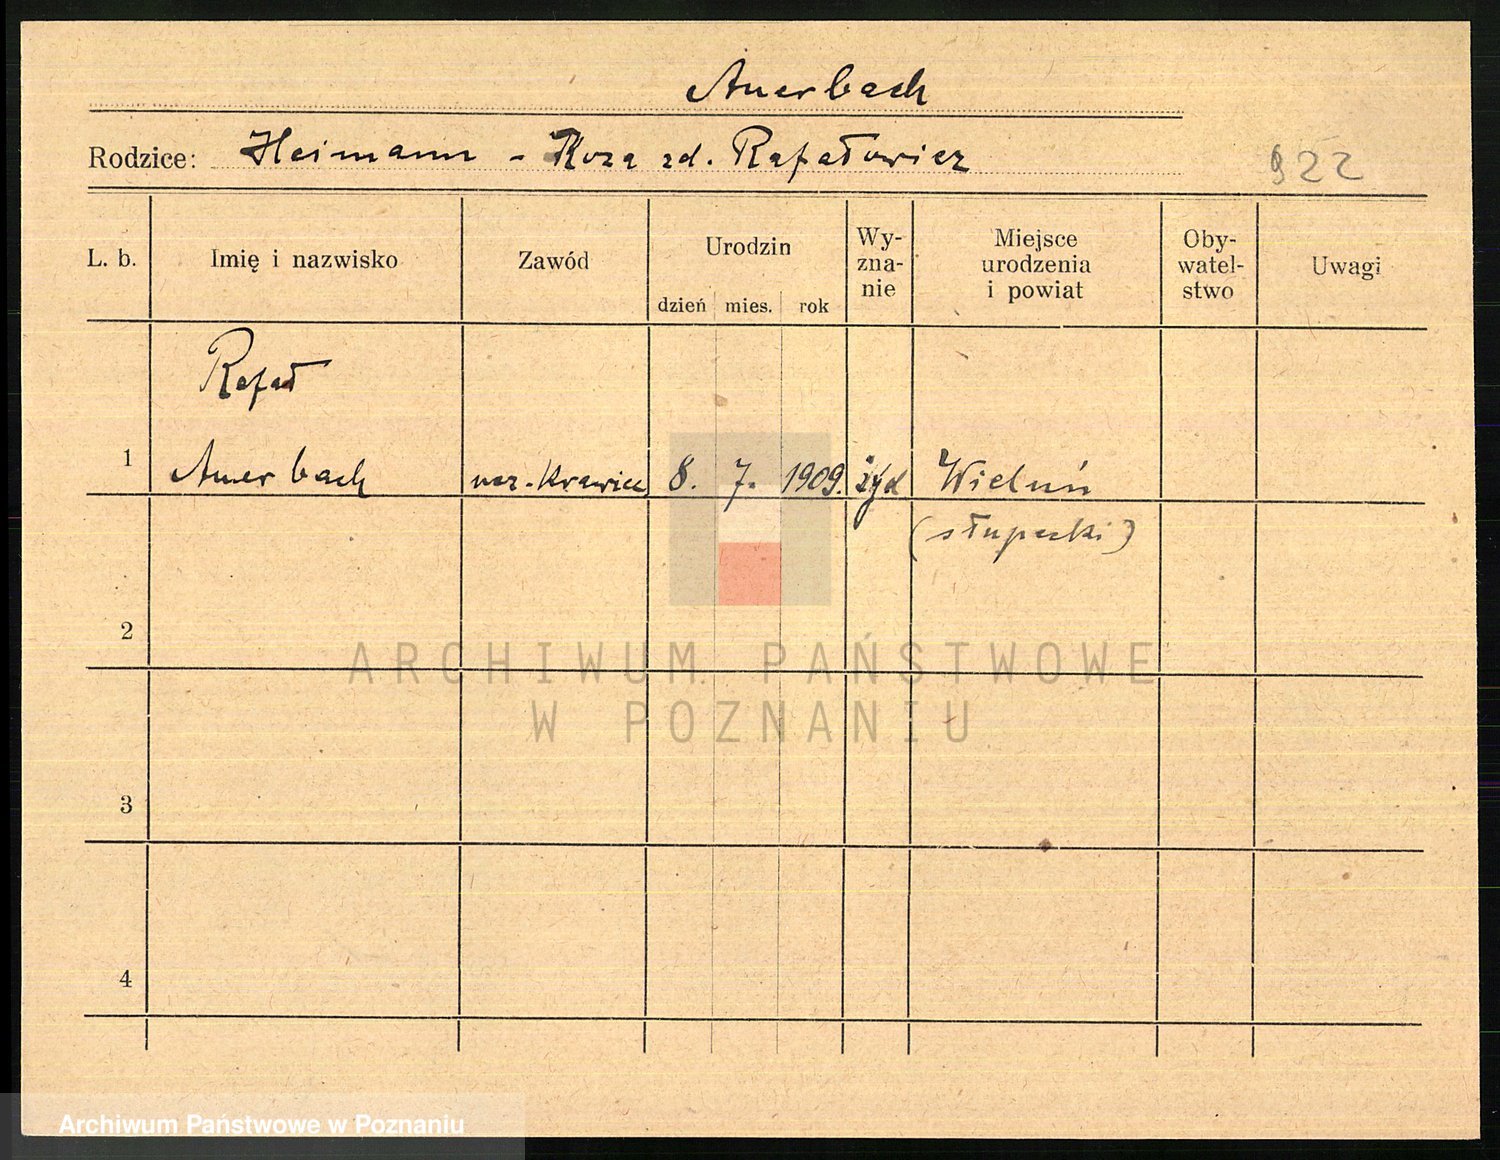 Auerbach
Rodzice: Heimann - Roza zd. Rafałowicz
922
L. b.
Imię i nazwisko
Zawód
Urodzin
dzień mies. rok
Wy-
zna-
nie
Miejsce
urodzenia
i powiat
Oby-
watel-
stwo
Uwagi
Rafał
1 Auerbach krawiec 8. 7. 1909. żyd Wieluń
(słupecki)
2
3
4
ARCHIWUM PAŃSTWOWE
W POZNANIU
Archiwum Państwowe w Poznaniu